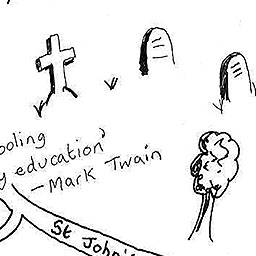 ooling
y education'
- Mark Twain
St John's